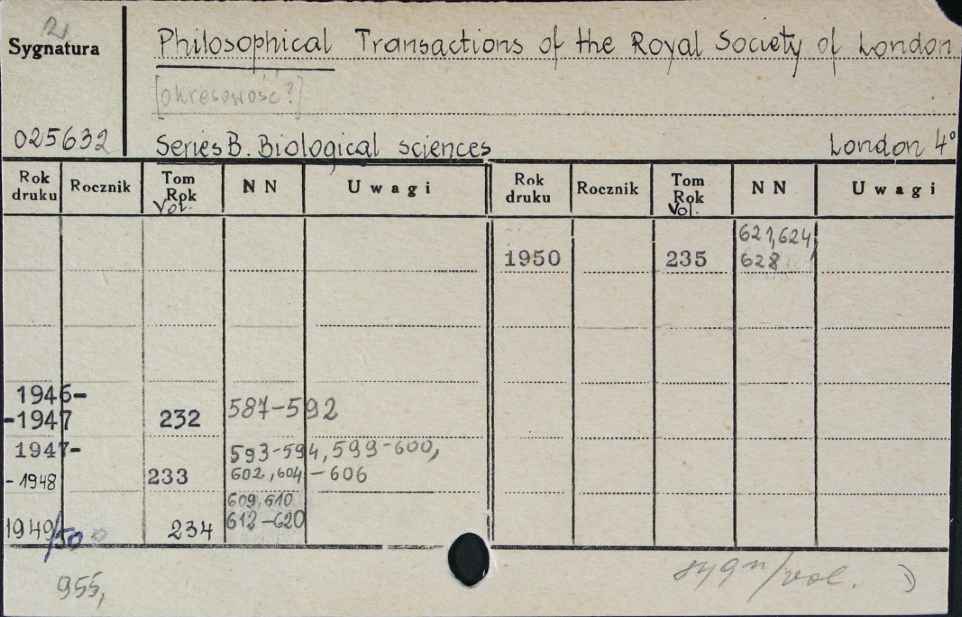 Sygnatura
Philosophical Transactions of the Royal Society of London
[okresowość?]
025632 Series B. Biological sciences London 4°
Rok druku Rocznik Tom Rok Vol. NN Uwagi Rok druku Rocznik Tom Rok Vol. NN Uwagi
621,624
1950 235 628
1946-
-1947 232 587-592
1947- 593-594, 599-600,
-1948 233 602,604-606
609,610
1949/50 234 612-620
955,